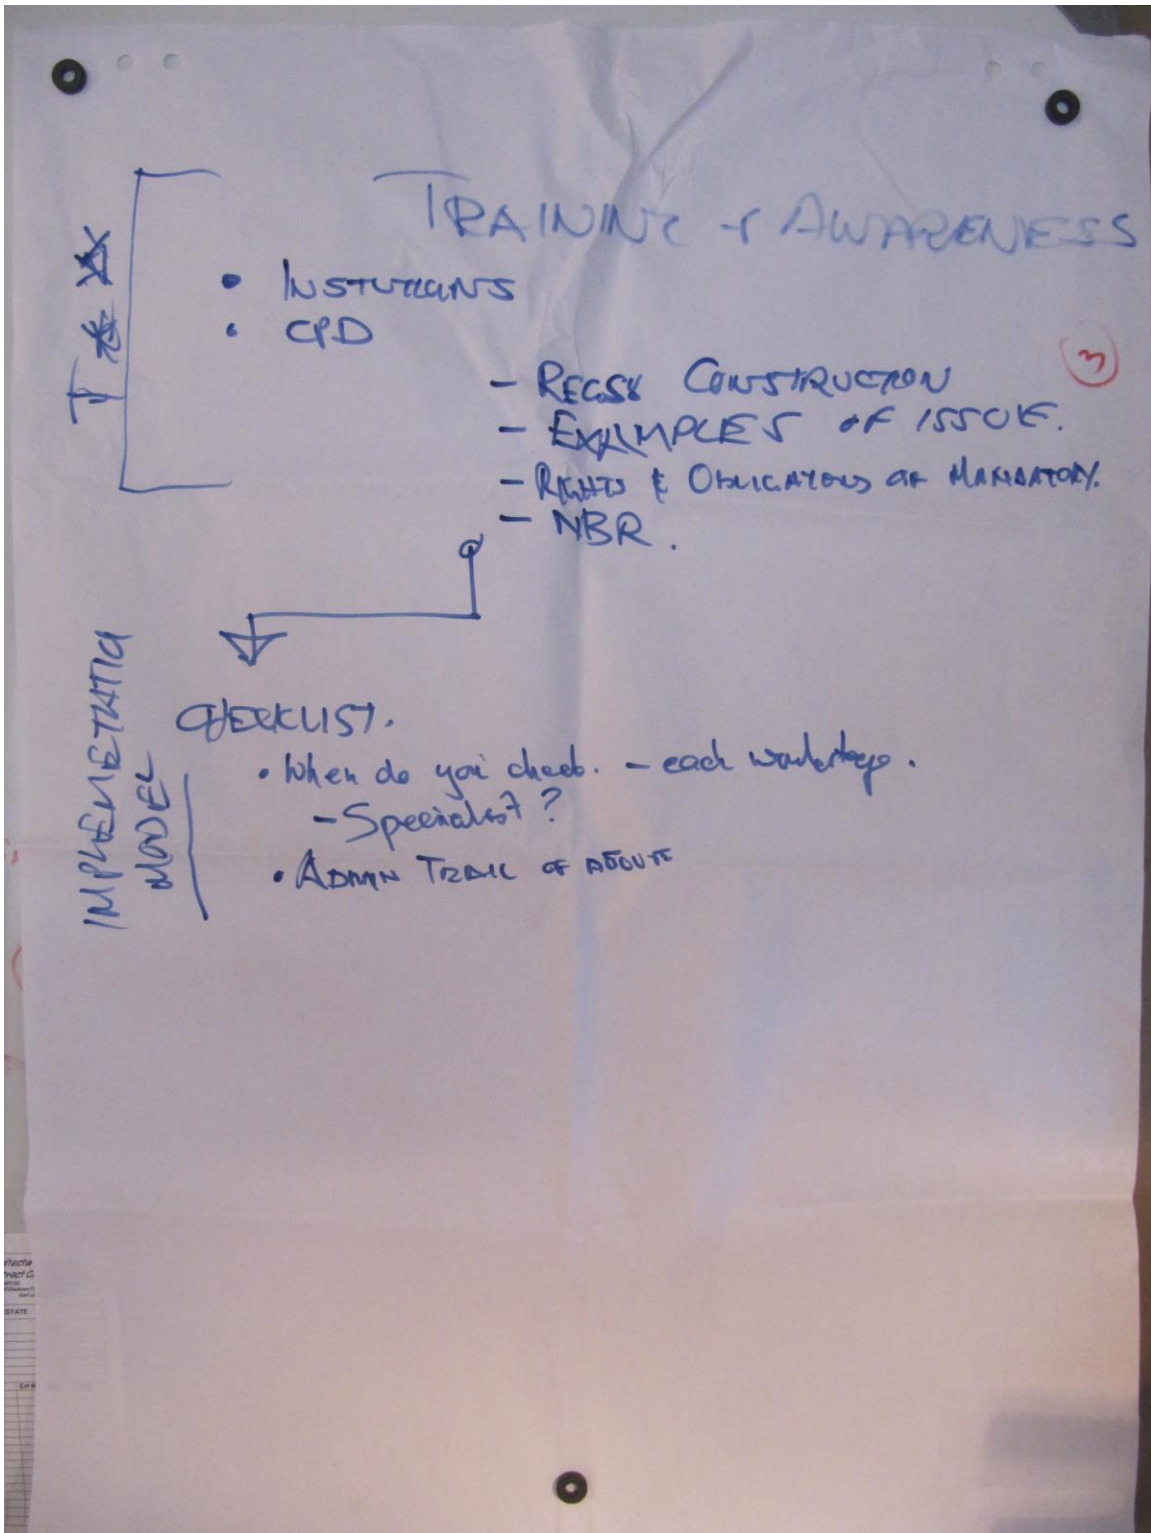 TRAINING + AWARENESS
• INSTUTIONS
• CPD
3
- REGS & CONSTRUCTION
- EXAMPLES OF ISSUE.
- RIGHTS & OBLIGATIONS OF MANDATORY.
- NBR.
IMPLEMETATIO
MODEL
CHECKLIST.
• When do you check. - each workstage.
- Specialist?
• ADMIN TRAIL OF ABOVE
ESTATE